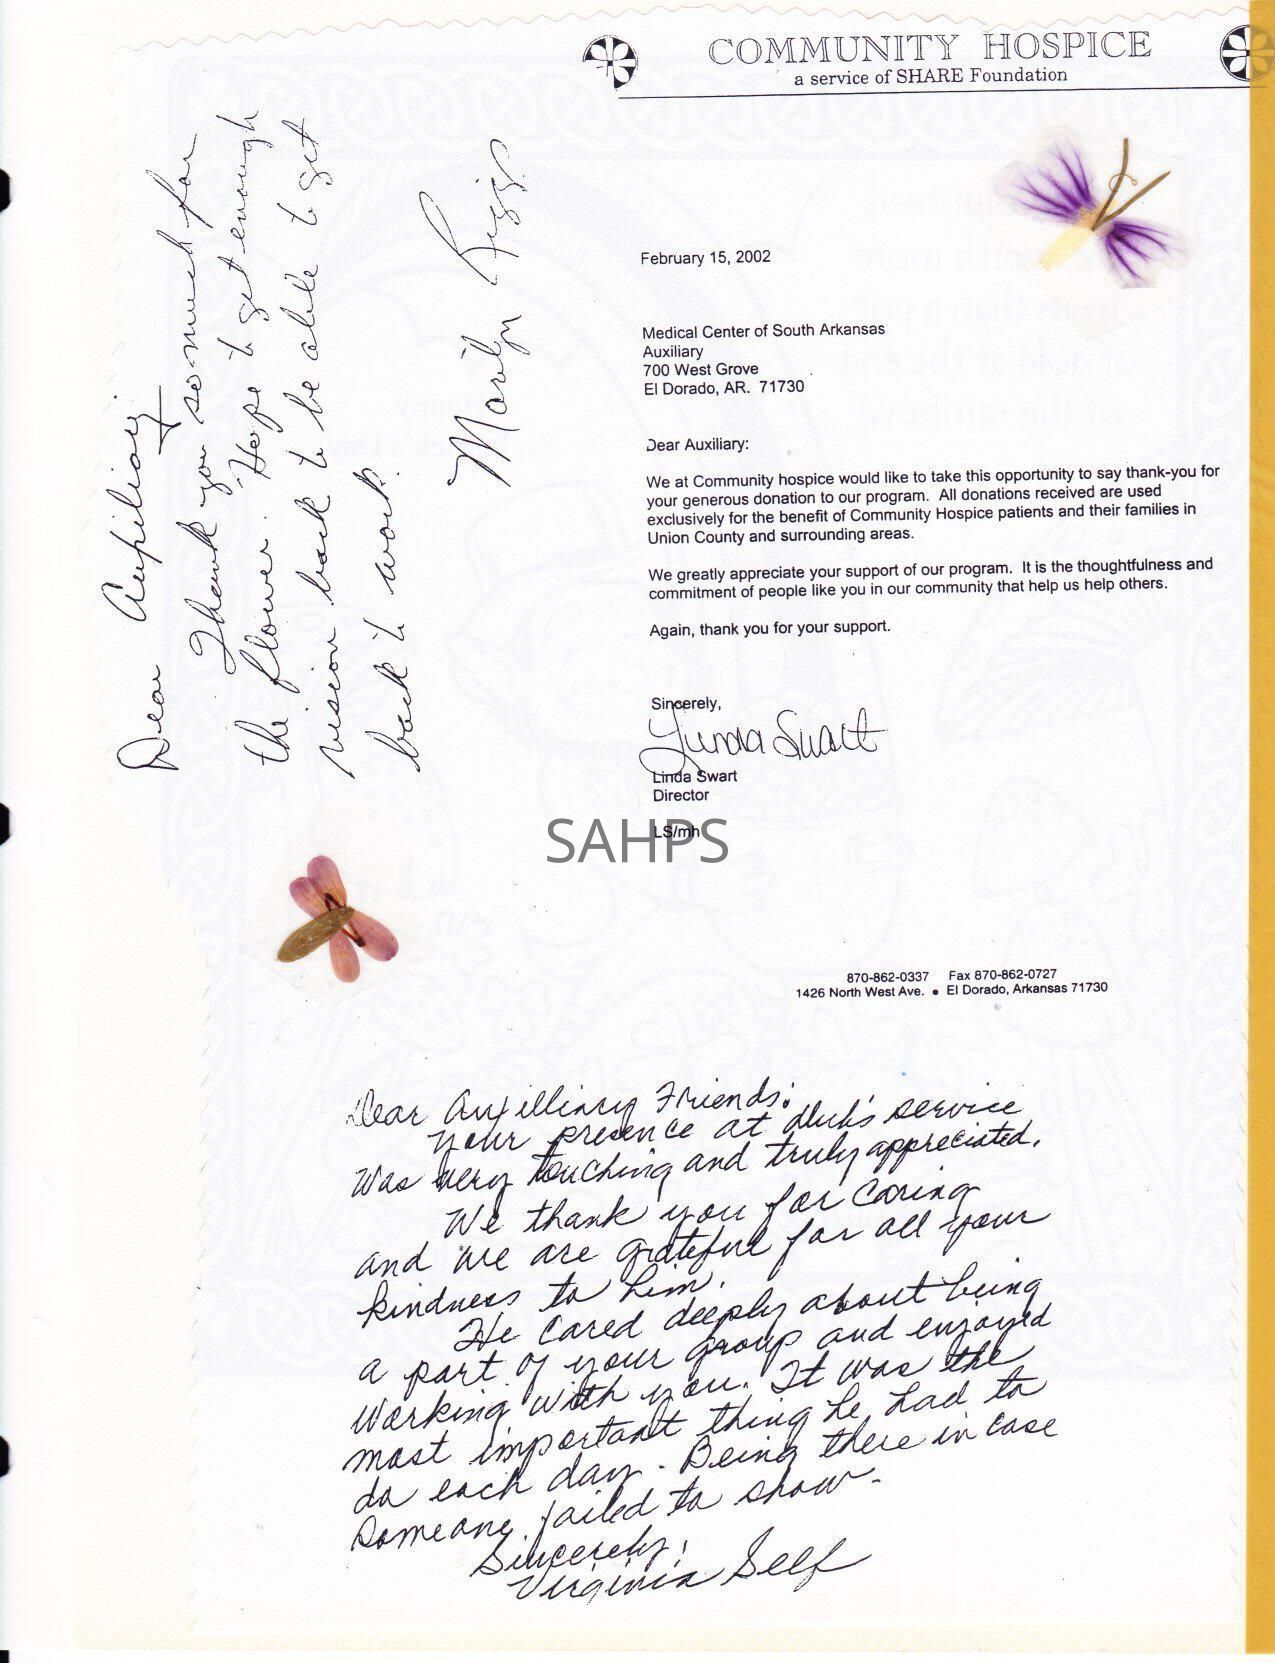 COMMUNITY HOSPICE
a service of SHARE Foundation
Dear Auxiliary
Thank you so much for
the flower. Hope to get enough
vision back to be able to get
back to work.
Marilyn Riggs
February 15, 2002
Medical Center of South Arkansas
Auxiliary
700 West Grove
El Dorado, AR. 71730
Dear Auxiliary:
We at Community hospice would like to take this opportunity to say thank-you for
your generous donation to our program. All donations received are used
exclusively for the benefit of Community Hospice patients and their families in
Union County and surrounding areas.
We greatly appreciate your support of our program. It is the thoughtfulness and
commitment of people like you in our community that help us help others.
Again, thank you for your support.
Sincerely,
Linda Swart
Linda Swart
Director
LS/mh
SAHPS
870-862-0337 Fax 870-862-0727
1426 North West Ave. • El Dorado, Arkansas 71730
Dear Auxilliary Friends:
Your presence at service
was very touching and truly appreciated.
We thank you for caring
and we are grateful for all your
kindness to him.
He cared deeply about being
a part of your group and enjoyed
working with you. It was the
most important thing he had to
do each day. Being there in case
someone failed to show.
Sincerely,
Virginia Self